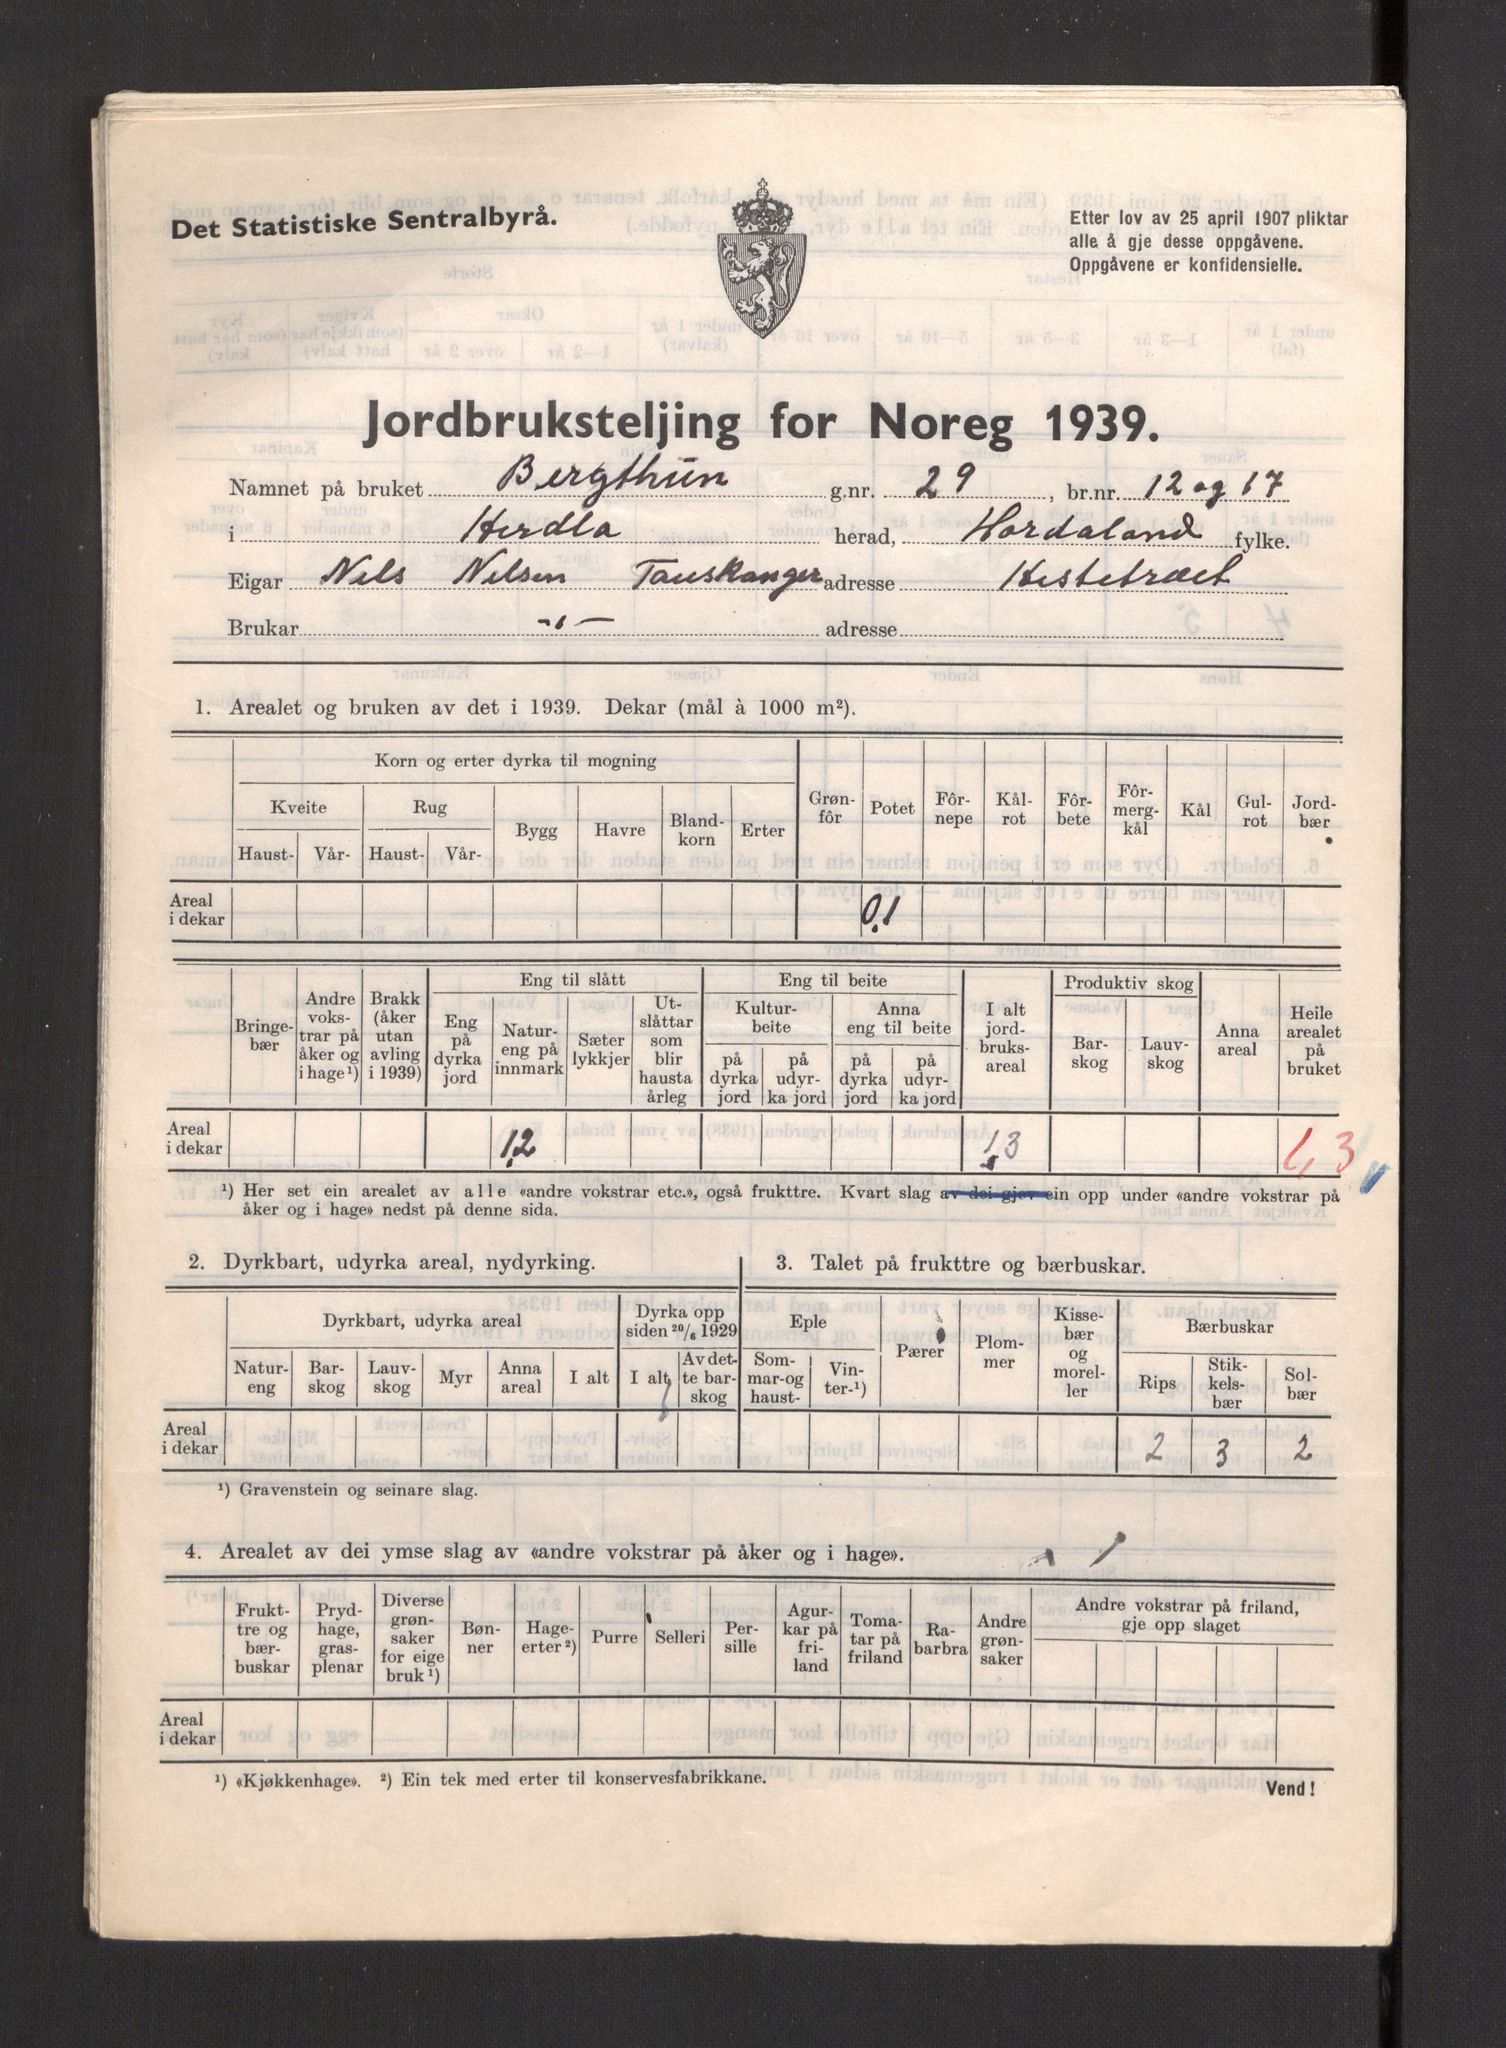 Det Statistiske Sentralbyrå.
Etter lov av 25 april 1907 pliktar
alle å gje desse oppgåvene.
Oppgåvene er konfidensielle.
Jordbruksteljing for Noreg 1939.
Namnet på bruket Bergthun g.nr. 29, br.nr. 12 og 17
i Herdla herad, Hordaland fylke.
Eigar Nils Nilsen Tauskanger adresse Hestetræet
Brukar -"- adresse
1. Arealet og bruken av det i 1939. Dekar (mål à 1000 m²).
Korn og erter dyrka til mogning
Kveite Rug Bygg Havre Blandkorn Erter Grønfôr Potet Fôrnepe Kålrot Fôrbete Fôrmergkål Kål Gulrot Jordbær
Haust- Vår- Haust- Vår-
Areal i dekar 0,1
Eng til slått Eng til beite Produktiv skog
Bringebær Andre vokstrar på åker og i hage¹) Brakk (åker utan avling i 1939) Eng på dyrka jord Natureng på innmark Sæterlykkjer Utslåttar som blir hausta årleg Kulturbeite Anna eng til beite I alt jordbruksareal Barskog Lauvskog Anna areal Heile arealet på bruket
på dyrka jord på udyrka jord på dyrka jord på udyrka jord
Areal i dekar 1,2 1,3 1,3
¹) Her set ein arealet av alle «andre vokstrar etc.», også frukttre. Kvart slag av dei gjev ein opp under «andre vokstrar på
åker og i hage» nedst på denne sida.
2. Dyrkbart, udyrka areal, nydyrking.
Dyrkbart, udyrka areal Dyrka opp siden 20/6 1929
Natureng Barskog Lauvskog Myr Anna areal I alt I alt Av dette barskog
Areal i dekar
¹) Gravenstein og seinare slag.
3. Talet på frukttre og bærbuskar.
Eple Pærer Plommer Kissebær og moreller Bærbuskar
Sommar- og haust- Vinter-¹) Rips Stikkelsbær Solbær
2 3 2
4. Arealet av dei ymse slag av «andre vokstrar på åker og i hage».
Frukttre og bærbuskar Prydhage, grasplenar Diverse grønsaker for eige bruk¹) Bønner Hageerter²) Purre Selleri Persille Agurkar på friland Tomatar på friland Rabarbra Andre grønsaker Andre vokstrar på friland, gje opp slaget
Areal i dekar
¹) «Kjøkkenhage». ²) Ein tek med erter til konservesfabrikkane.
Vend!